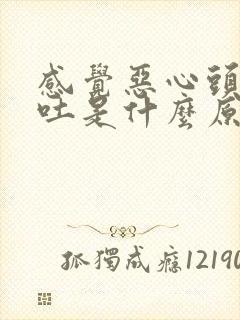 感覺惡心頭
吐是什麼原
孤獨成癮12190